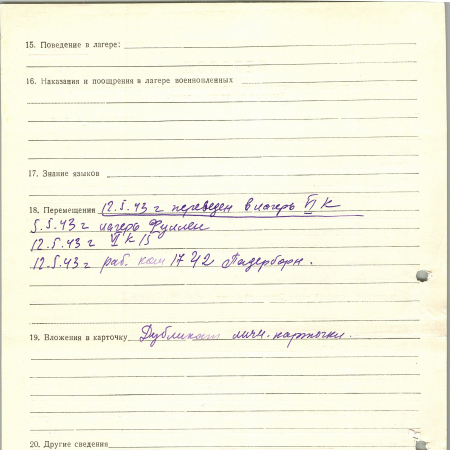 15. Поведение в лагере:
16. Наказания и поощрения в лагере военнопленных
17. Знание языков
18. Перемещения 12.5.43 г переведен в лагерь VI К
5.5.43 г лагерь Фуллен
12.5.43 г VI К
12.5.43 г раб. ком 1742 Падерборн.
19. Вложения в карточку Дубликат личн. карточки.
20. Другие сведения